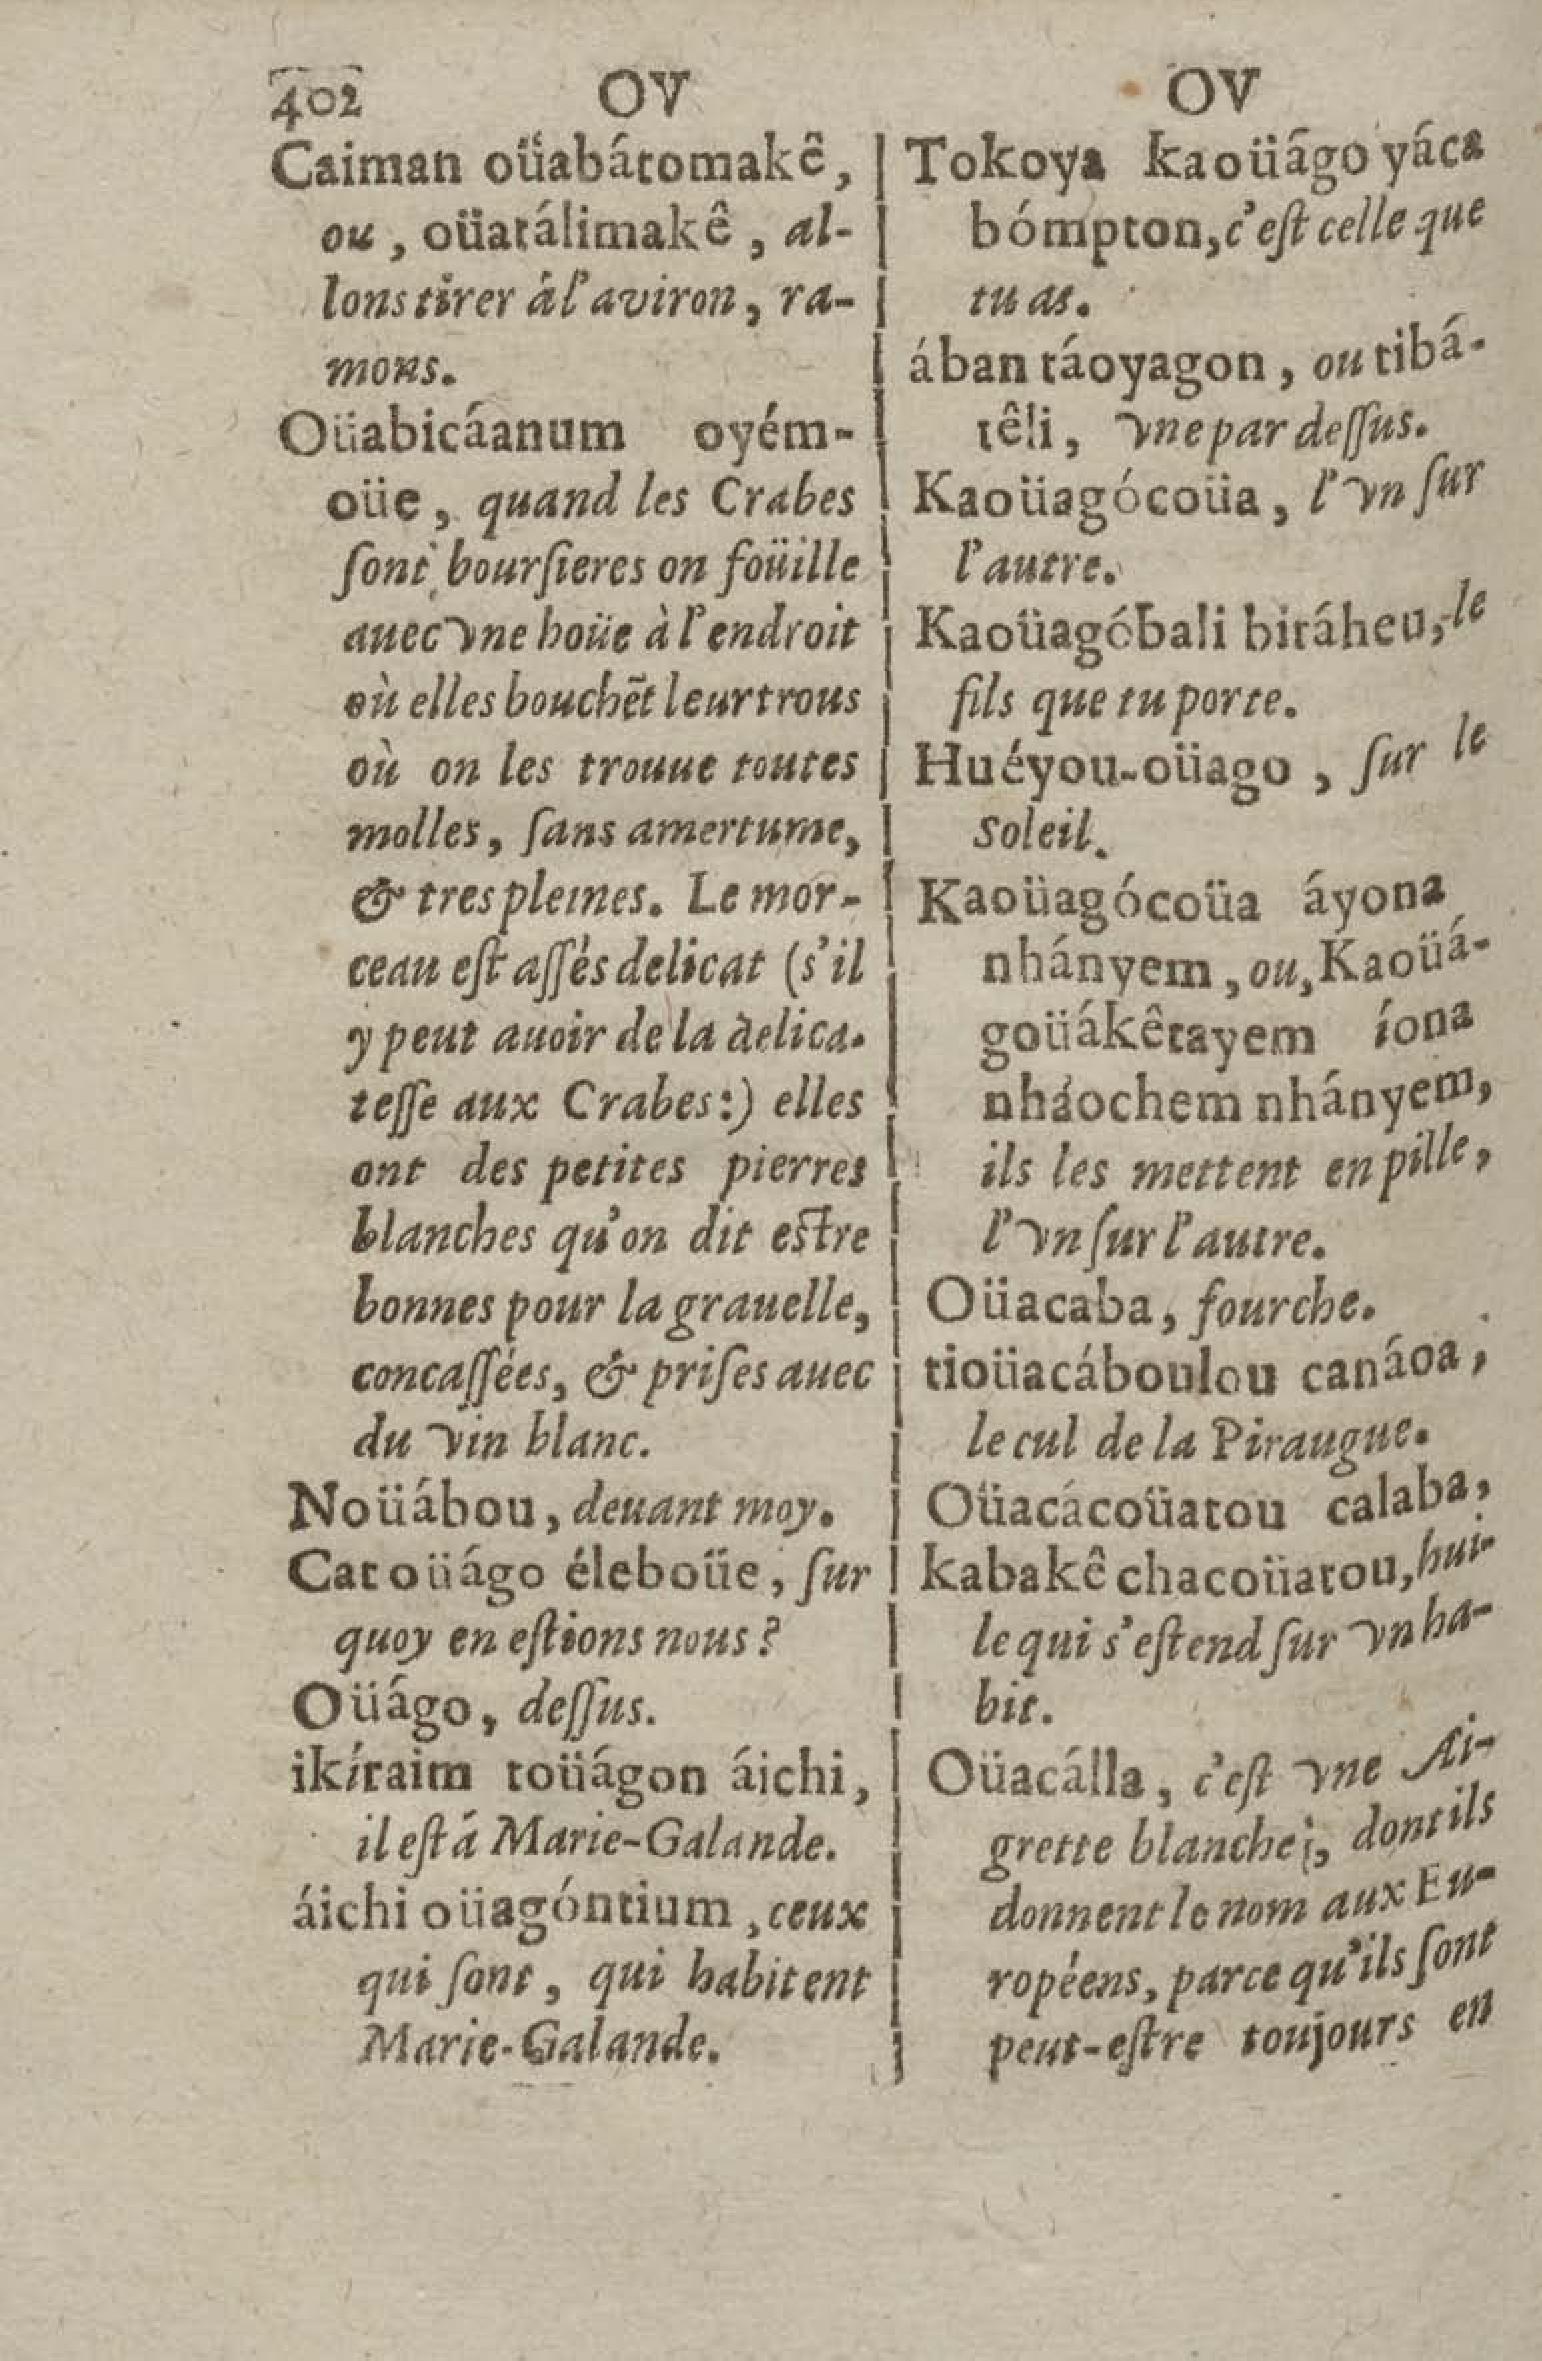 402 OV OV
Caiman oüabátomakê,
ou, oüatálimakê, al-
lons tirer á l'aviron, ra-
mons.
Oüabicáanum oyém-
oüe, quand les Crabes
ſont bourſieres on foüille
auec vne hoüe à l'endroit
où elles bouchẽt leur trous
où on les trouue toutes
molles, ſans amertume,
& tres pleines. Le mor-
ceau eſt aſſés delicat (s'il
y peut auoir de la delica-
teſſe aux Crabes:) elles
ont des petites pierres
blanches qu'on dit eſtre
bonnes pour la grauelle,
concaſſées, & priſes auec
du vin blanc.
Noüábou, deuant moy.
Catoüágo éleboüe, ſur
quoy en eſtions nous?
Oüágo, deſſus.
ikíraim toüágon áichi,
il eſt á Marie-Galande.
áichi oüagóntium, ceux
qui ſont, qui habitent
Marie-Galande.
Tokoya kaoüágo yáca
bómpton, c'eſt celle que
tu as.
ában táoyagon, ou tibá-
têli, vne par deſſus.
Kaoüagócoüa, l'vn ſur
l'autre.
Kaoüagóbali biráheu, le
fils que tu porte.
Huéyou-oüago, ſur le
Soleil.
Kaoüagócoüa áyona
nhányem, ou, Kaoüá-
goüákêtayem íona
nháochem nhányem,
ils les mettent en pille,
l'vn ſur l'autre.
Oüacaba, fourche.
tioüacáboulou canáoa,
le cul de la Piraugue.
Oüacácoüatou calaba,
kabakê chacoüatou, hui-
le qui s'eſtend ſur vn ha-
bit.
Oüacálla, c'eſt vne Ai-
grette blanche, dont ils
donnent le nom aux Eu-
ropéens, parce qu'ils ſont
peut-eſtre toujours en